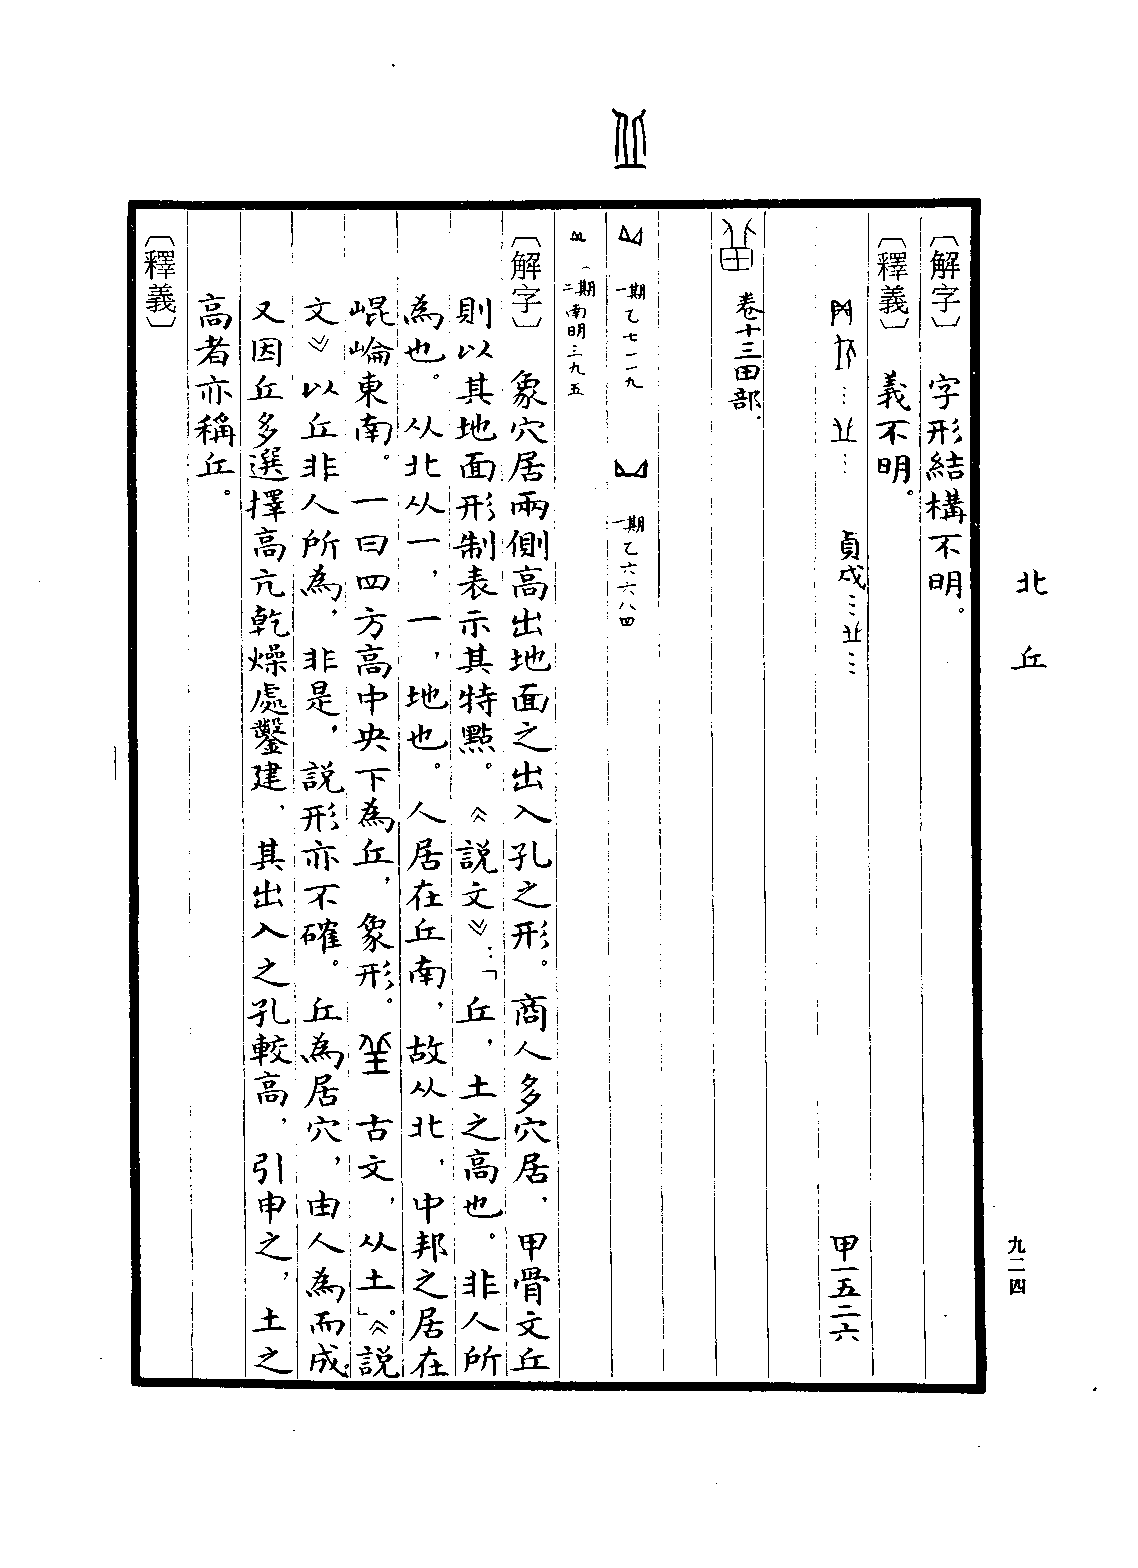 北丘
九二四
〔解字〕字形結構不明。
〔釋義〕義不明。
貞戌…… 甲一五二六
卷十三田部。
一期乙七一一九 一期乙六六八四
二期南明三九五
〔解字〕象穴居兩側高出地面之出入孔之形。商人多穴居，甲骨文丘
則以其地面形制表示其特點。《說文》：「丘，土之高也。非人所
為也。从北从一，一，地也。人居在丘南，故从北，中邦之居在
崐崘東南。一曰四方高中央下為丘，象形。古文，从土」。《說
文》以丘非人所為，非是，說形亦不確。丘為居穴，由人為而成，
又因丘多選擇高亢乾燥處鑿建，其出入之孔較高，引申之，土之
高者亦稱丘。
〔釋義〕